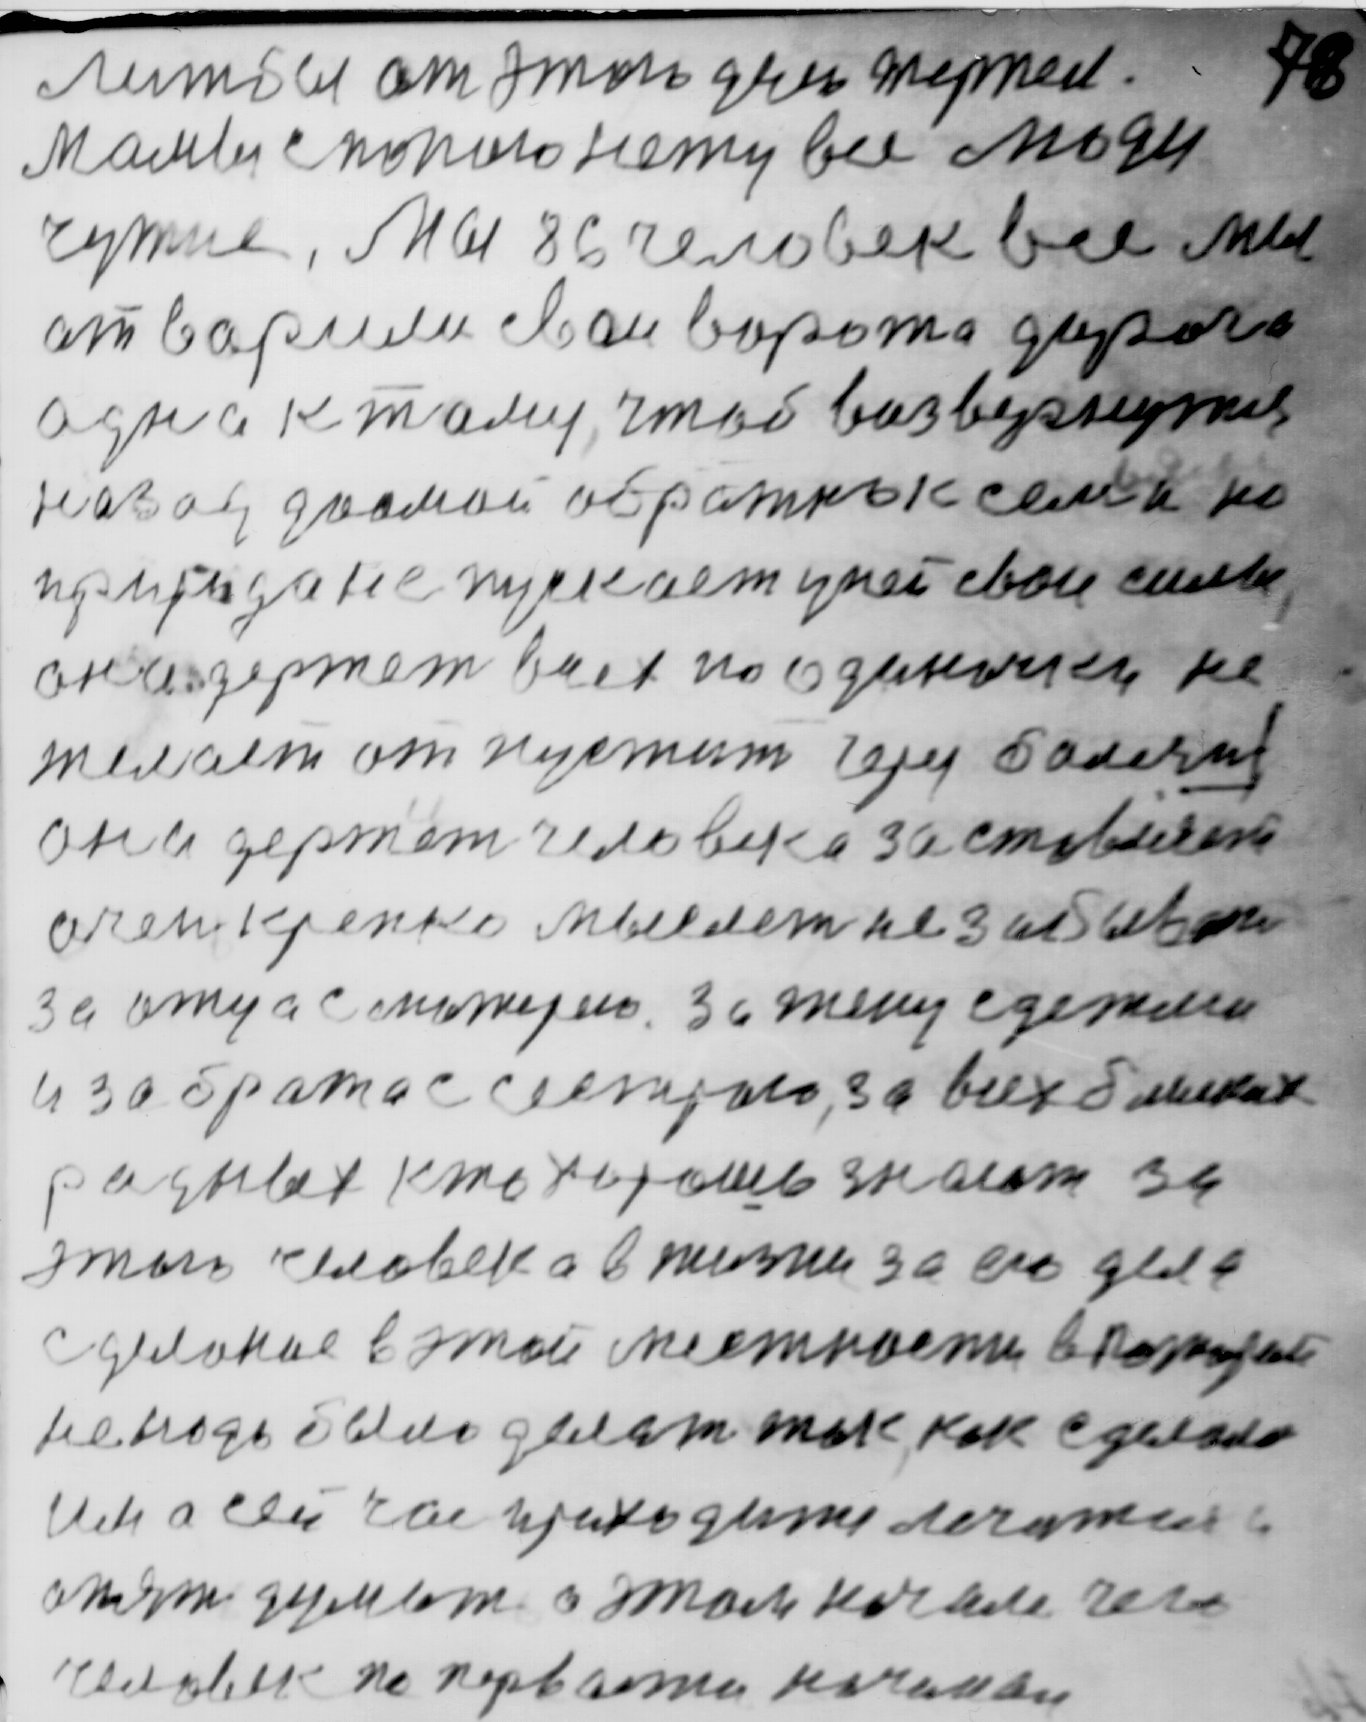 78
лишбы от этого дело жертвы.
Мамы с попого нету все люди
чужие, Мы 86 человек все мы
от варили свои ворота дорога
одна к тому, чтоб вазвернутся
назад домой обратнок семьи но
природа не пускает у ней свои силы,
она держет всех по одиночки не
желает от пустит через болезнь
она держет человека заставляет
очен крепко мыслет не забыват
за отца с матерю. За жену с детями
и за брата с сестрою, за всех близких
радных кто хорошо знают за
этого человека в жизни за его дела
сделаное в этой местности в которой
ненадо было делат так, как сделано
им а сейчас приходится лечится и
опят думат о этом начале чего
человек по первости начинал